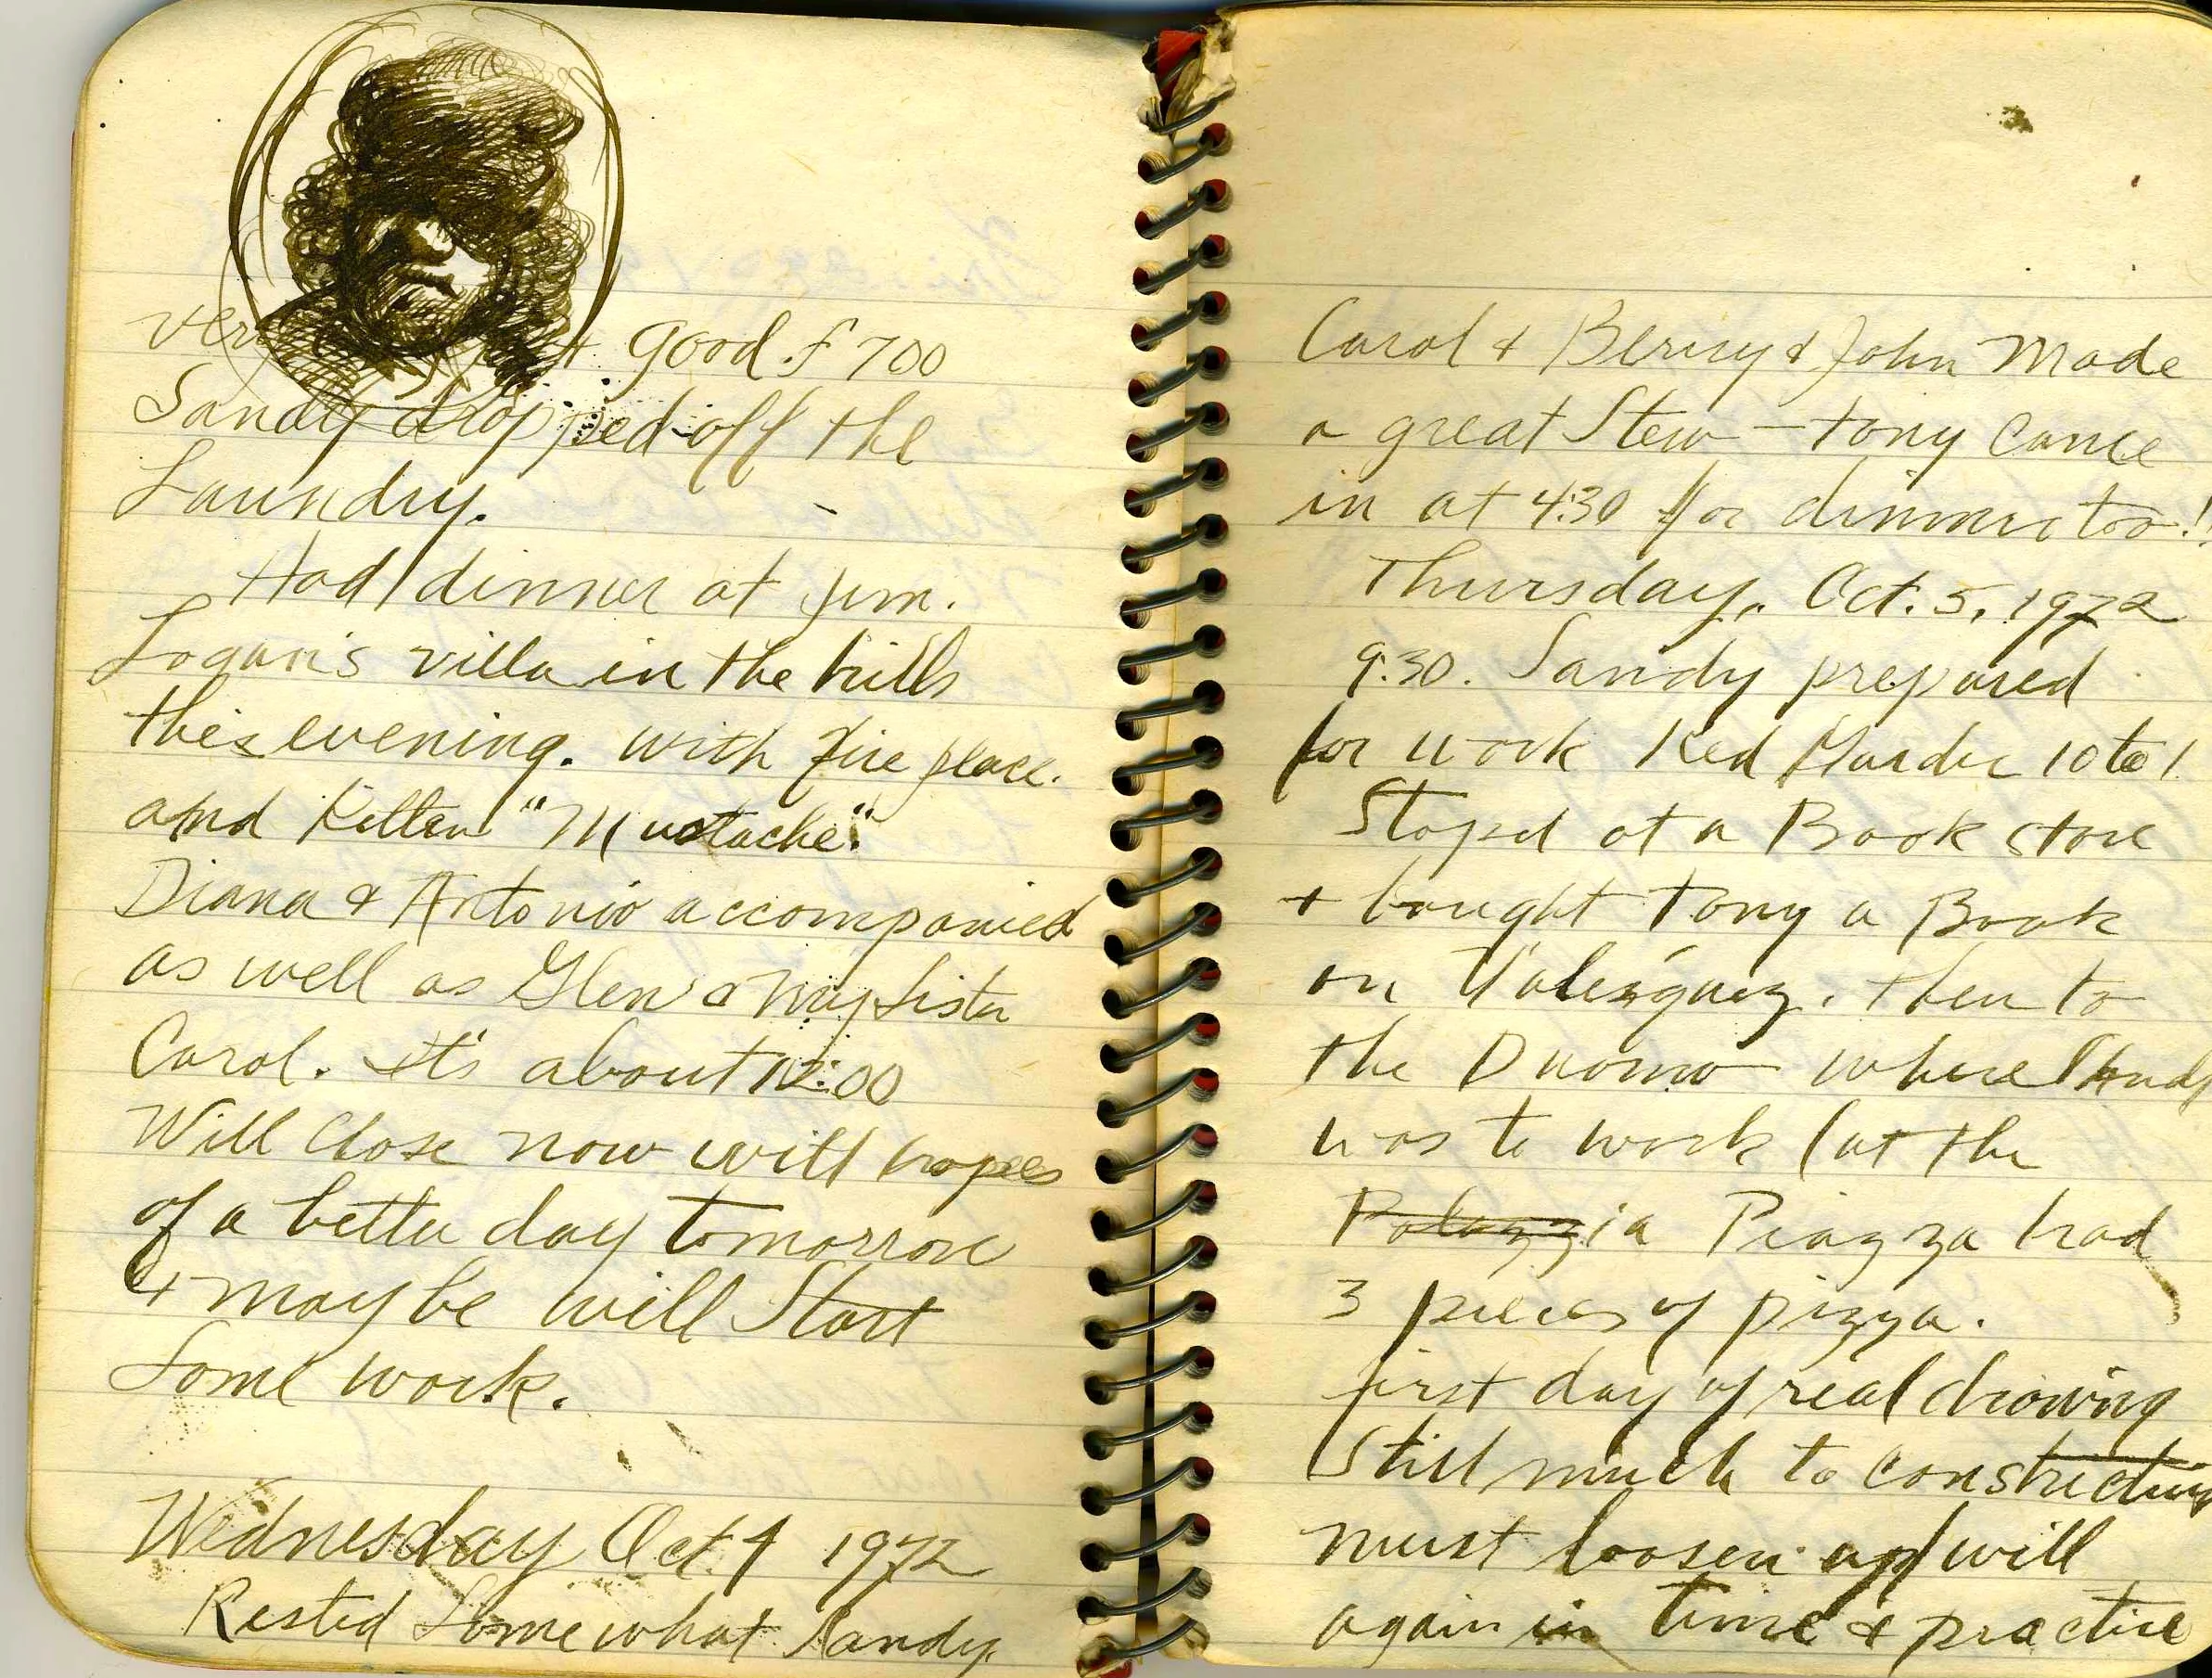 good £700
Sandy dropped off the
Laundry.
Had dinner at Jim.
Logan's villa in the hills
this evening. with fire place.
and Kitten "Mustache".
Diana & Antonio accompanied
as well as Glen & my sister
Carol. it's about 12:00
Will close now with hopes
of a better day tomorrow
& may be will Start
Some work.
Wednesday Oct. 4 1972
Rested Somewhat Sandy.
Carol & & John Made
a great Stew – tony came
in at 4:30 for dinner too!!
Thursday. Oct. 5, 1972
9:30. Sandy prepared
for work Red Garder 10 to 1.
Stoped at a Book store
+ bought Tony a Book
on Valezquez. then to
the Duomo where Sandy
was to work (at the
Palazzia Piazza had
3 pieces of pizza.
first day of real drawing
Still much to constricting
must loosen up/will
again in time & practice